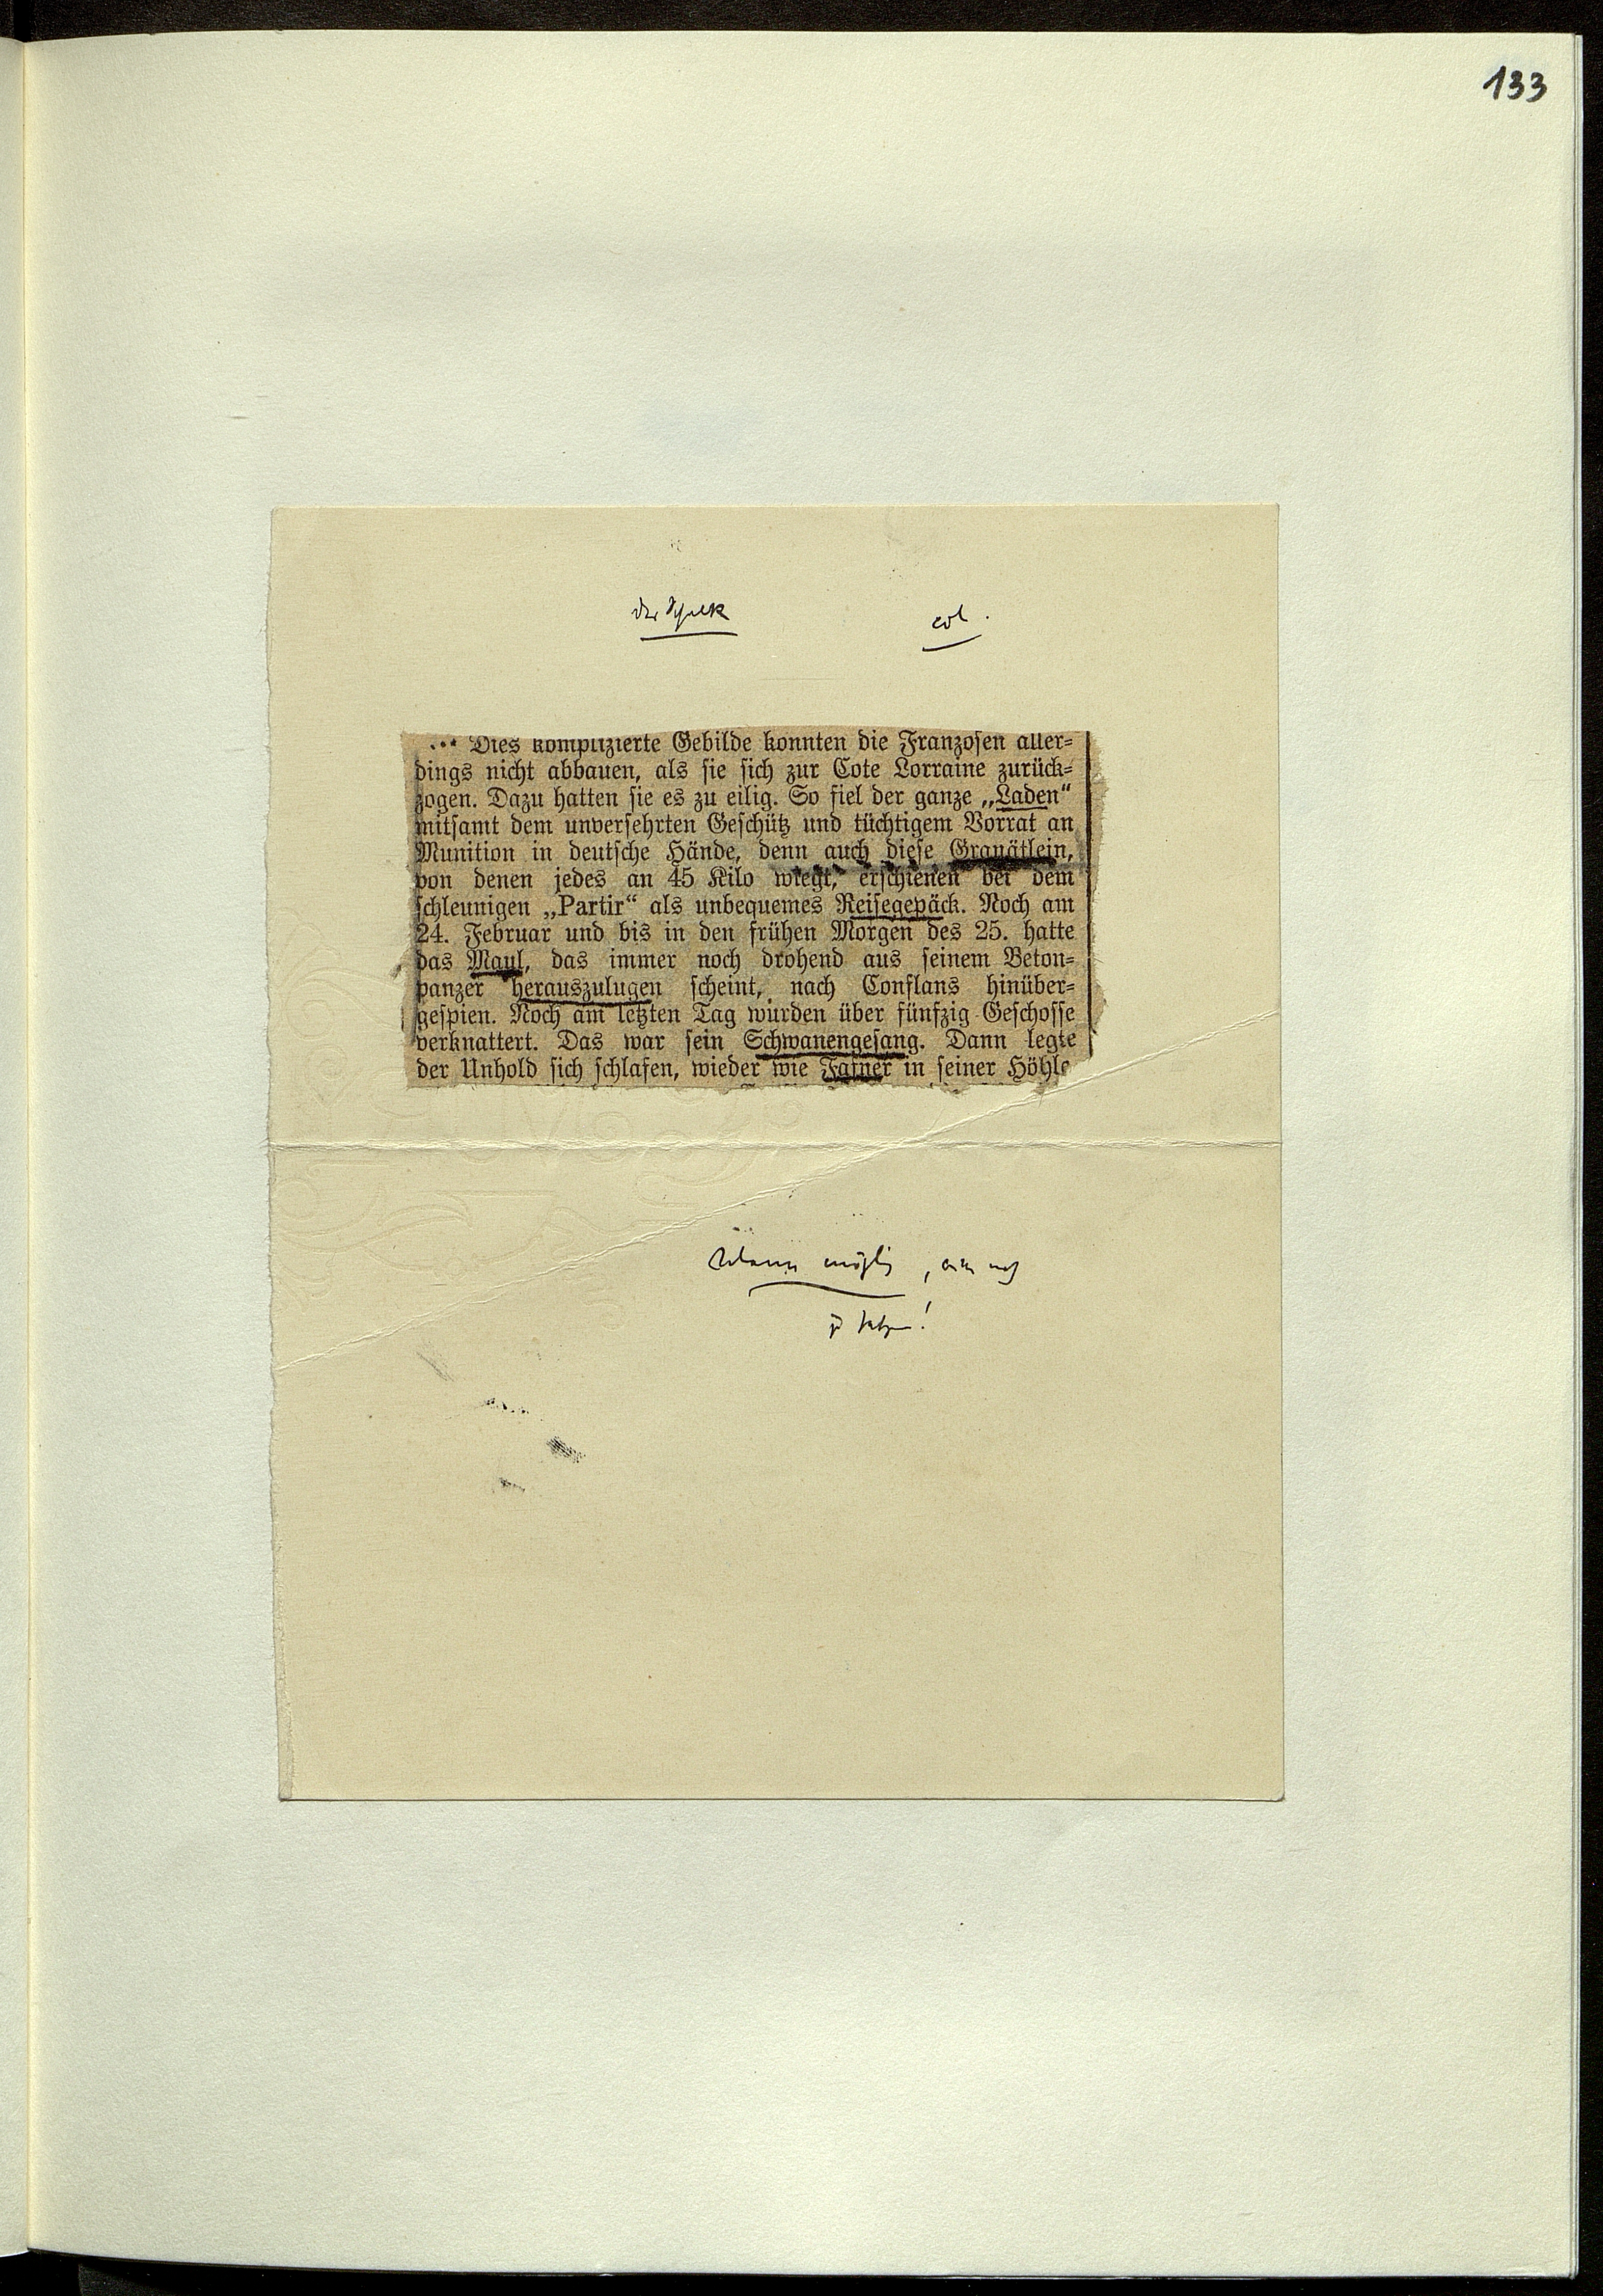 133
der Schalk
col.
... Dies komplizierte Gebilde konnten die Franzosen aller-
dings nicht abbauen, als sie sich zur Cote Lorraine zurück-
zogen. Dazu hatten sie es zu eilig. So fiel der ganze „Laden“
mitsamt dem unversehrten Geschütz und tüchtigem Vorrat an
Munition in deutsche Hände, denn auch diese Granätlein,
von denen jedes an 45 Kilo wiegt, erschienen bei dem
schleunigen „Partir“ als unbequemes Reisegepäck. Noch am
24. Februar und bis in den frühen Morgen des 25. hatte
das Maul, das immer noch drohend aus seinem Beton-
panzer herauszulugen scheint, nach Conflans hinüber-
gespien. Noch am letzten Tag wurden über fünfzig Geschosse
verknattert. Das war sein Schwanengesang. Dann legte
der Unhold sich schlafen, wieder wie Fafner in seiner Höhle
möglich,
!